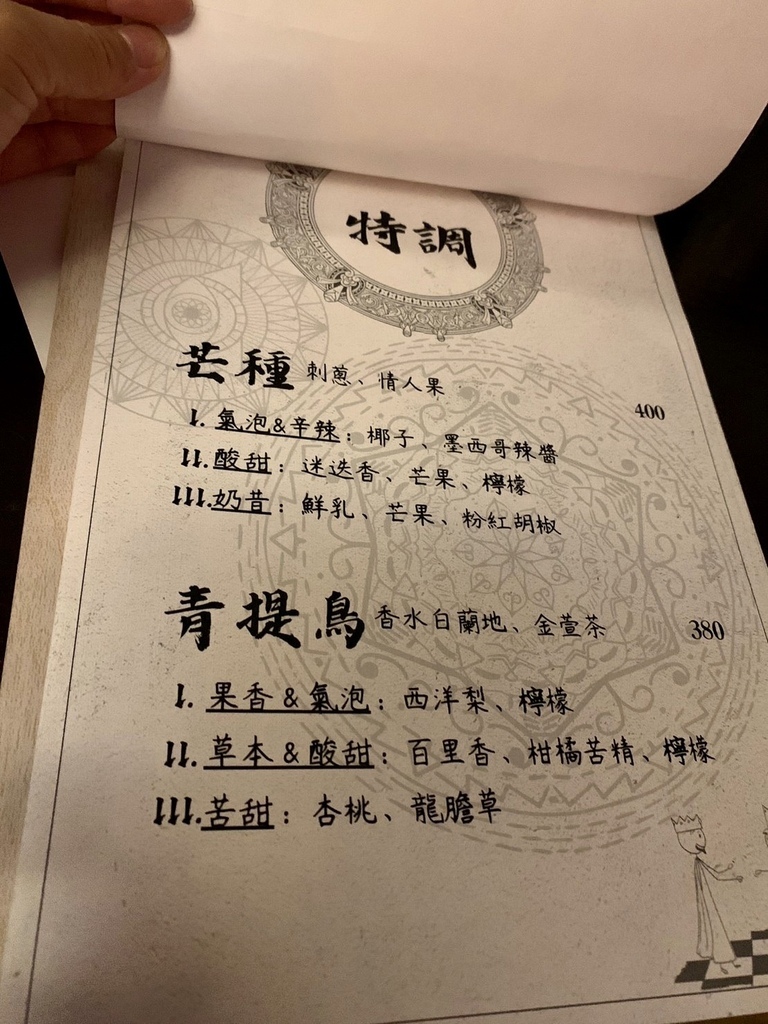 特調
芒種 刺蔥、情人果
400
I. 氣泡&辛辣：椰子、墨西哥辣醬
II. 酸甜：迷迭香、芒果、檸檬
III. 奶昔：鮮乳、芒果、粉紅胡椒
青提鳥 香水白蘭地、金萱茶 380
I. 果香&氣泡：西洋梨、檸檬
II. 草本&酸甜：百里香、柑橘苦精、檸檬
III. 苦甜：杏桃、龍膽草